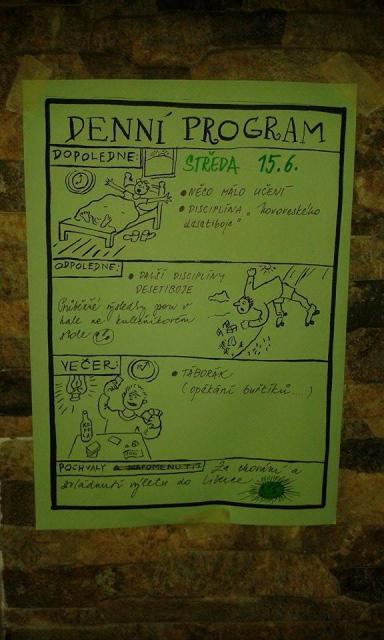 DENNÍ PROGRAM
DOPOLEDNE:
STŘEDA 15.6.
• NĚCO MÁLO UČENÍ
• DISCIPLÍNA „hovoreského
desatiboje"
ODPOLEDNE:
• DALŠÍ DISCIPLÍNY
DESETIBOJE
Průběžné výsledky jsou v
hale na kulečníkovém
stole
VEČER:
• TÁBORÁK
(opékání buřtíků....)
POCHVALY A NAPOMENUTÍ: Za chování a
zvládnutí výletu do Liberce